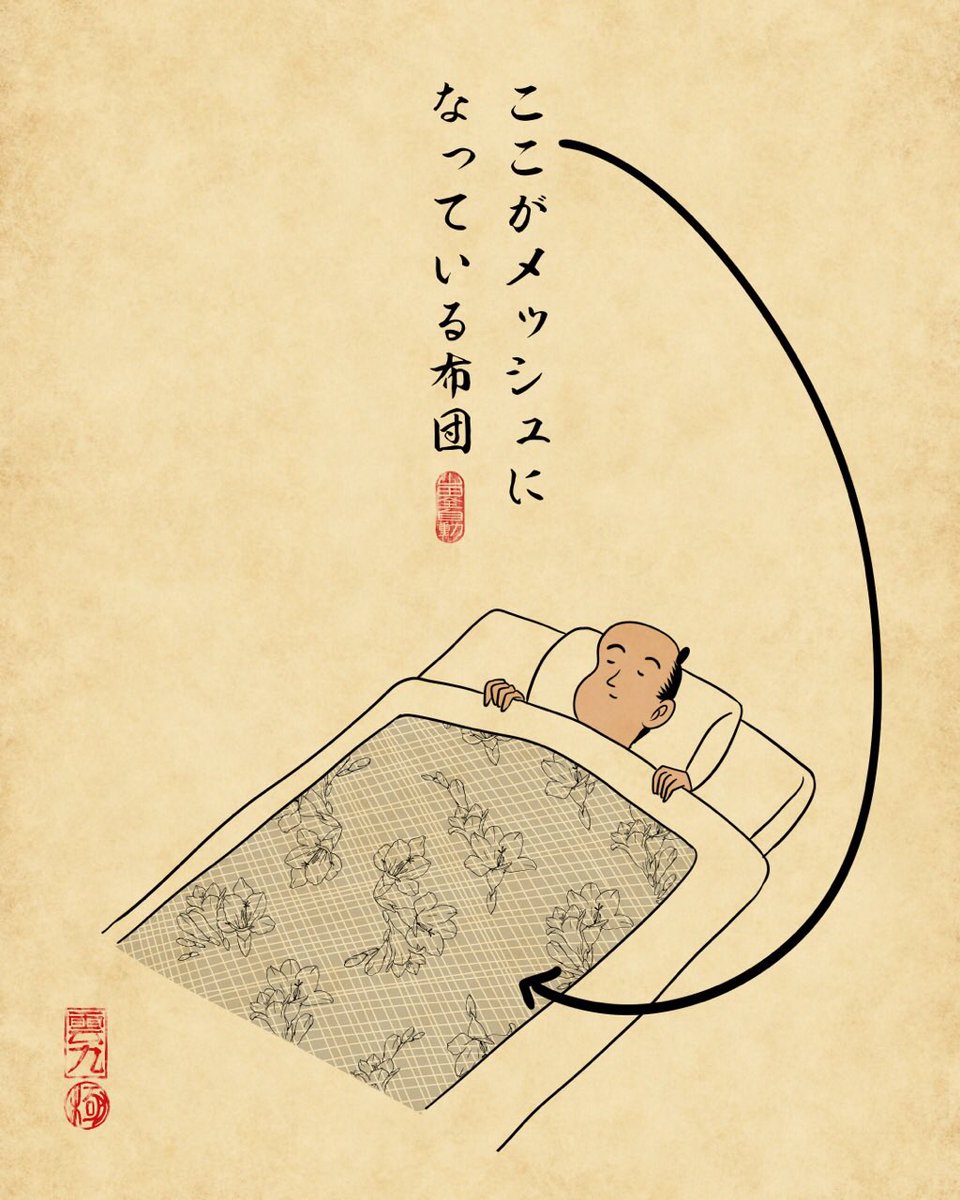 ここがメッシュに
なっている布団